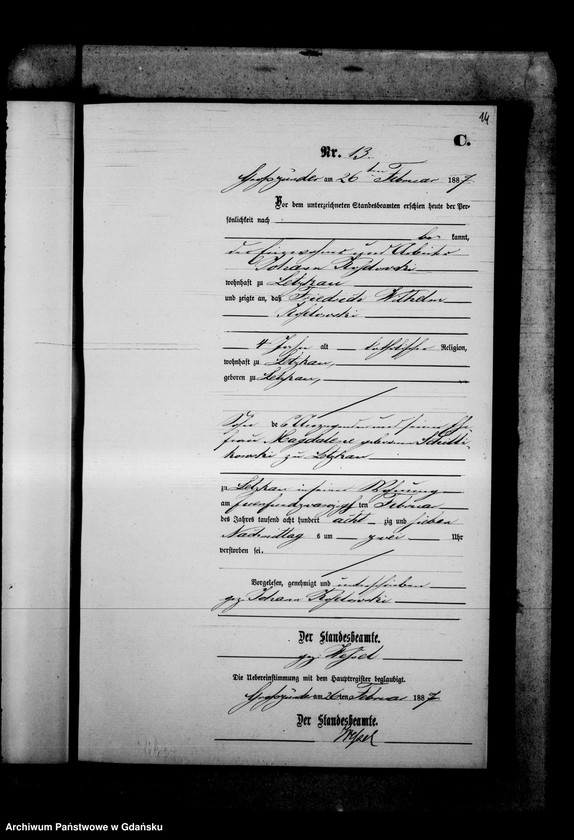 14
C.
Nr. 13.
Großzünder am 26ten Februar 1887
Vor dem unterzeichneten Standesbeamten erschien heute der Per-
sönlichkeit nach
be kannt,
der Einwohner und Arbeiter
Johann
wohnhaft zu Letzkau
und zeigte an, daß Friedrich Wilhelm
4 Jahre alt katholischer Religion,
wohnhaft zu Letzkau,
geboren zu Letzkau,
Sohn des Anzeigenden und seiner Ehe-
frau Magdalene geborenen
zu Letzkau
zu Letzkau in seiner Wohnung
am fünfundzwanzigsten Februar
des Jahres tausend acht hundert acht zig und sieben
Nachmittags um zwei Uhr
verstorben sei.
Vorgelesen, genehmigt und unterschrieben
gez. Johann
Der Standesbeamte.
gez. Wessel
Die Uebereinstimmung mit dem Hauptregister beglaubigt.
Großzünder am 26ten Februar 1887
Der Standesbeamte.
Wessel
Archiwum Państwowe w Gdańsku